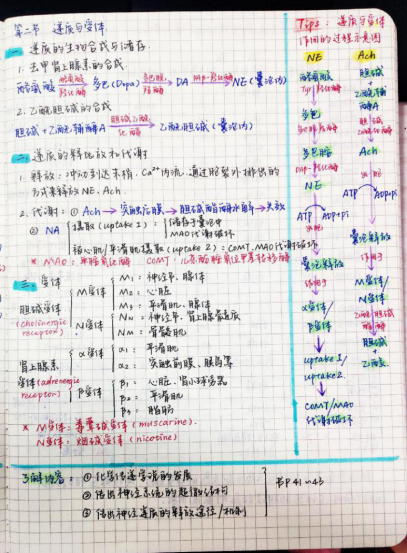 第二节 递质与受体
一. 递质的生物合成与储存.
1. 去甲肾上腺素的合成.
酪氨酸 酪氨酸羟化酶 多巴(Dopa) 多巴脱羧酶 DA DAβ-羟化酶 NE(囊泡内)
2. 乙酰胆碱的合成
胆碱+乙酰辅酶A 胆碱乙酰化酶 乙酰胆碱(囊泡内)
二. 递质的释放和代谢
1. 释放: 冲动到达末梢, Ca²⁺内流, 通过胞裂外排出的
方式来释放NE, Ach.
2. 代谢: ① Ach → 突触后膜 → 胆碱酯酶水解 → 失效
② NA 摄取(uptake 1) 储存于囊泡中
MAO代谢破坏
被心肌/平滑肌摄取(uptake 2): COMT, MAO代谢破坏
* MAO: 单胺氧化酶 COMT: 儿茶酚胺氧位甲基转移酶
三. 受体
胆碱受体
(cholinergic
receptor)
M受体
M₁: 神经节、腺体
M₂: 心脏
M₃: 平滑肌、腺体
N受体
Nɴ: 神经节、肾上腺髓质
Nᴍ: 骨骼肌
肾上腺素
受体(adrenergic
receptor)
α受体
α₁: 平滑肌
α₂: 突触前膜、胰岛等
β受体
β₁: 心脏、肾小球旁器
β₂: 平滑肌
β₃: 脂肪
* M受体: 毒蕈碱受体(muscarine).
N受体: 烟碱受体(nicotine)
了解内容: ① 化学传递学说的发展
② 传出神经系统的超微结构
③ 传出神经递质的释放途径/机制
书P41~43
Tips: 递质与受体
作用的过程示意图
NE
酪氨酸
Tyr羟化酶
多巴
多巴脱羧酶
多巴胺
DAβ-羟化酶
NE
ATP
ADP+Pi
囊泡释放
作用于
α受体/
β受体
uptake1/
uptake2
COMT/MAO
代谢破坏
Ach
胆碱
乙酰辅酶A
胆碱乙酰化酶
Ach
ATP
ADP+Pi
囊泡释放
作用于
M受体/
N受体
乙酰胆碱酯酶
胆碱
+
乙酸